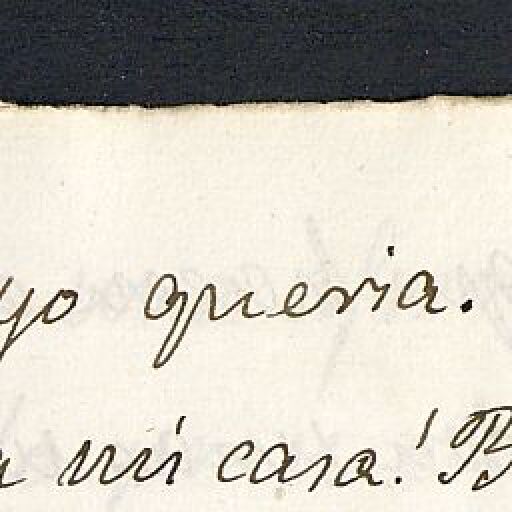 yo queria.
mi casa! B